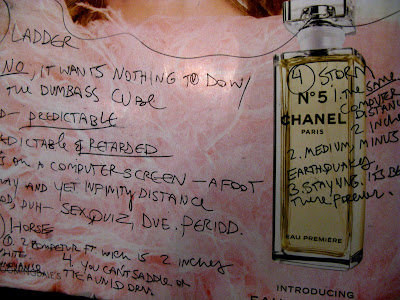 LADDER
NO, IT WANTS NOTHING TO DO W/
THE DUMBASS CUBE
PREDICTABLE
EDICTABLE & RETARDED
ON A COMPUTER SCREEN - A FOOT
AWAY AND YET INFINITY DISTANCE
DUH - SEX QUIZ, DVE. PERIOD.
HORSE
2 inches
4. YOU CAN'T SADDLE OR
THE A UNICORN
(4) STORM
1. The same
COMPUTER
DISTANCE
2 inches
2. MEDIUM, MINUS
EARTHQUAKES
3. STAYING. IT'S BE
There forever.
N°5
CHANEL
PARIS
EAU PREMIÈRE
INTRODUCING